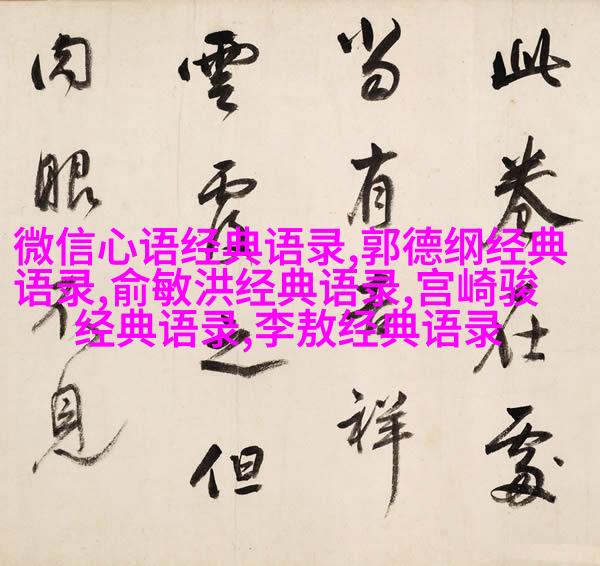 微信心语经典语录,郭德纲经典
语录,俞敏洪经典语录,宫崎骏
经典语录,李敖经典语录
此卷在處
當有吉祥
雲覆之但
肉眼不見